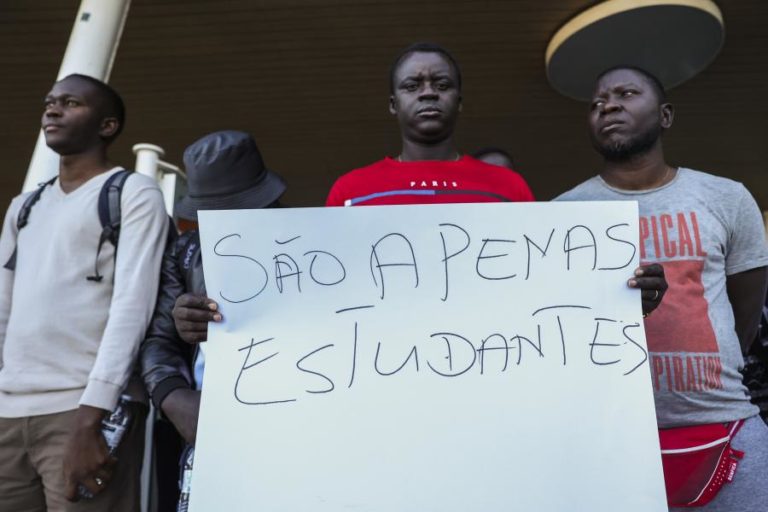 PARIS
SÃO APENAS
ESTUDANTES
PICAL
PIRATION